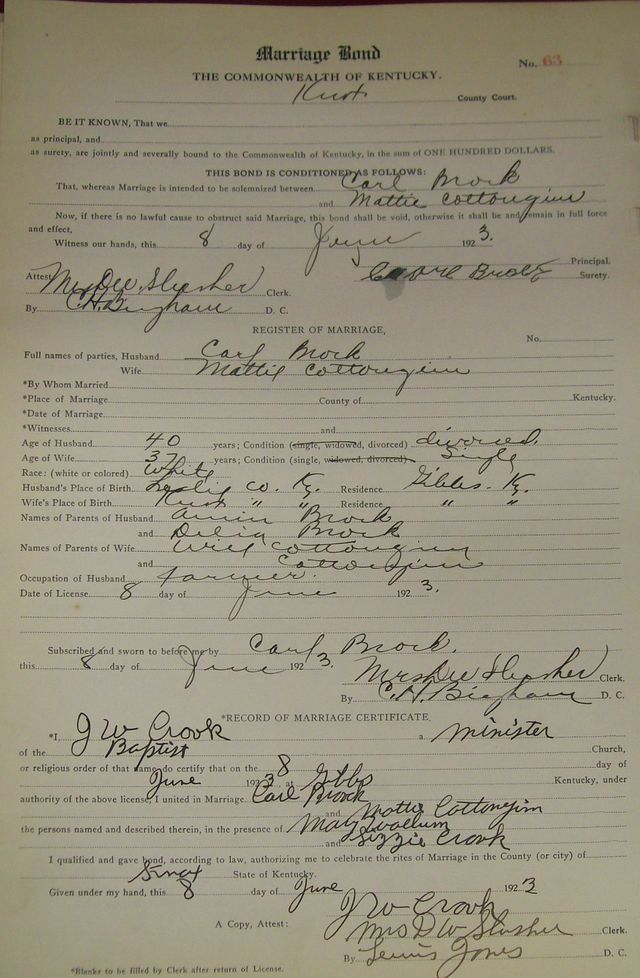 Marriage Bond
No. 63
THE COMMONWEALTH OF KENTUCKY.
Knox County Court.
BE IT KNOWN, That we
as principal, and
as surety, are jointly and severally bound to the Commonwealth of Kentucky, in the sum of ONE HUNDRED DOLLARS.
THIS BOND IS CONDITIONED AS FOLLOWS:
That, whereas Marriage is intended to be solemnized between Carl Brock
and Mattie Cottongim
Now, if there is no lawful cause to obstruct said Marriage, this bond shall be void, otherwise it shall be and remain in full force
and effect,
Witness our hands, this 8 day of June 1923.
Carl Brock Principal.
Attest Mrs D W Slusher Clerk. Surety.
By C. H. Bingham D. C.
REGISTER OF MARRIAGE,
No.
Full names of parties, Husband Carl Brock
Wife Mattie Cottongim
*By Whom Married
*Place of Marriage County of Kentucky.
*Date of Marriage
*Witnesses and
Age of Husband 40 years; Condition (single, widowed, divorced) divorced.
Age of Wife 37 years; Condition (single, widowed, divorced) Single
Race: (white or colored) White
Husband's Place of Birth Leslie Co. Ky. Residence Gibbs. Ky.
Wife's Place of Birth Knox " " Residence " "
Names of Parents of Husband Brock
and Delia Brock
Names of Parents of Wife Will Cottongim
and Cottongim
Occupation of Husband Farmer.
Date of License 8 day of June 1923.
Subscribed and sworn to before me by Carl Brock.
this 8 day of June 1923.
Mrs D W Slusher Clerk.
By C. H. Bingham D. C.
*RECORD OF MARRIAGE CERTIFICATE.
*I, J W Crook a minister
of the Baptist Church,
or religious order of that name do certify that on the 8 day of
June 1923 at Gibbs Kentucky, under
authority of the above license, I united in Marriage Carl Brock
and Mattie Cottongim
the persons named and described therein, in the presence of May
and Lizzie Crook
I qualified and gave bond, according to law, authorizing me to celebrate the rites of Marriage in the County (or city) of
Knox State of Kentucky.
Given under my hand, this 8 day of June 1923
J W Crook
A Copy, Attest: Mrs D W Slusher Clerk.
By Lewis Jones D. C.
*Blanks to be filled by Clerk after return of License.